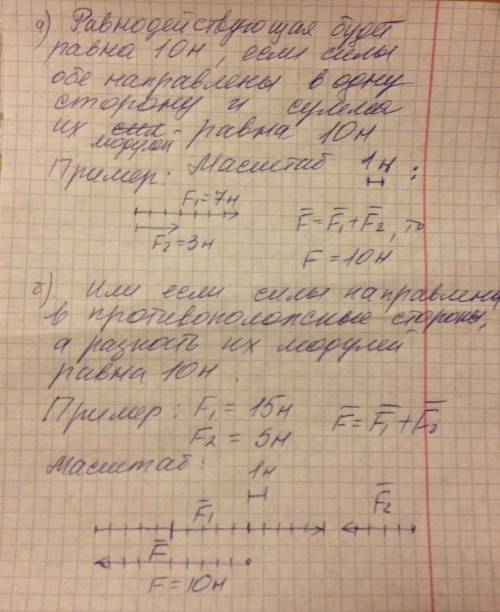 а) Равнодействующая будет
равна 10н, если силы
обе направлены в одну
сторону и сумма
их модулей равна 10н
Пример: Масштаб 1н ;
F₁=7н
F₂=3н
F̄=F̄₁+F̄₂, то
F=10н
б) Или если силы направлены
в противоположные стороны,
а разность их модулей
равна 10н.
Пример: F₁ = 15н
F₂ = 5н
F̄=F̄₁+F̄₂
Масштаб:
1н
F̄₁
F̄₂
F̄
F=10н